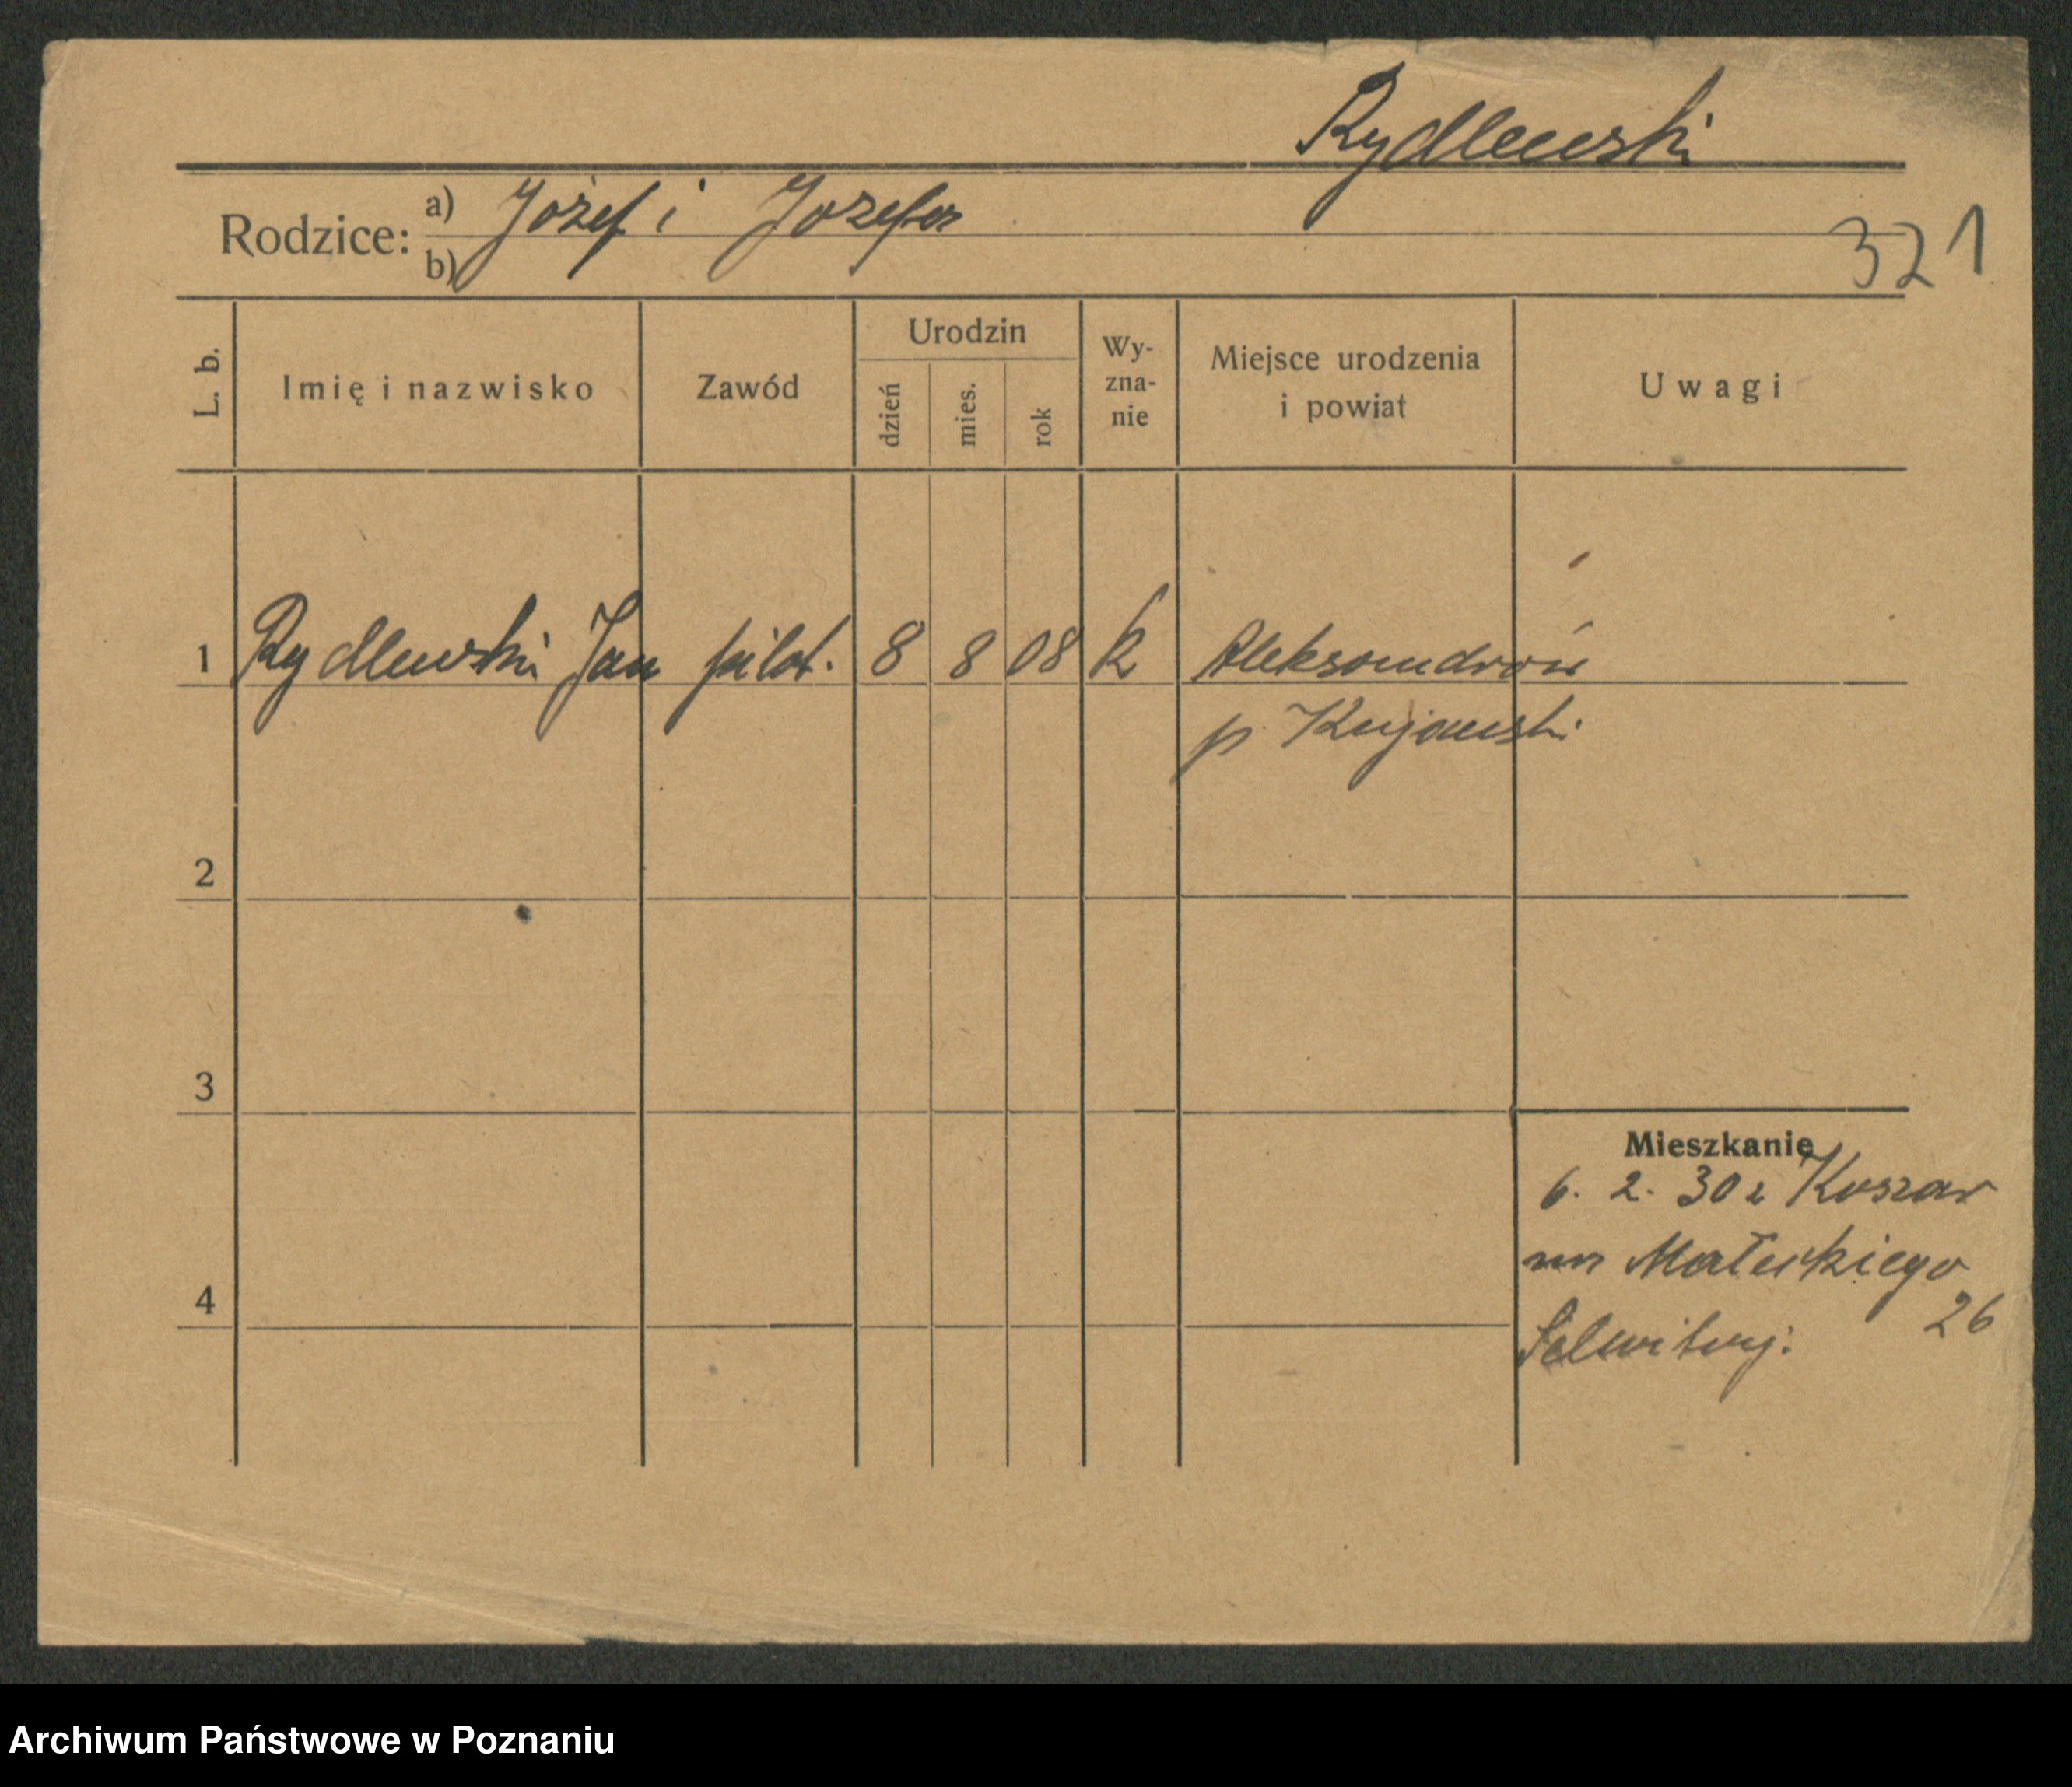 Rydlewski
Rodzice: a) Józef i Jozefa
b)
321
L. b. Imię i nazwisko Zawód Urodzin dzień mies. rok Wy-zna-nie Miejsce urodzenia i powiat Uwagi
1 Rydlewski Jan pilot. 8 8 08 k Aleksandrów
p. Kujawski
2
3
Mieszkanie
6. 2. 30 z Koszar
na Małeckiego
26
4
Archiwum Państwowe w Poznaniu